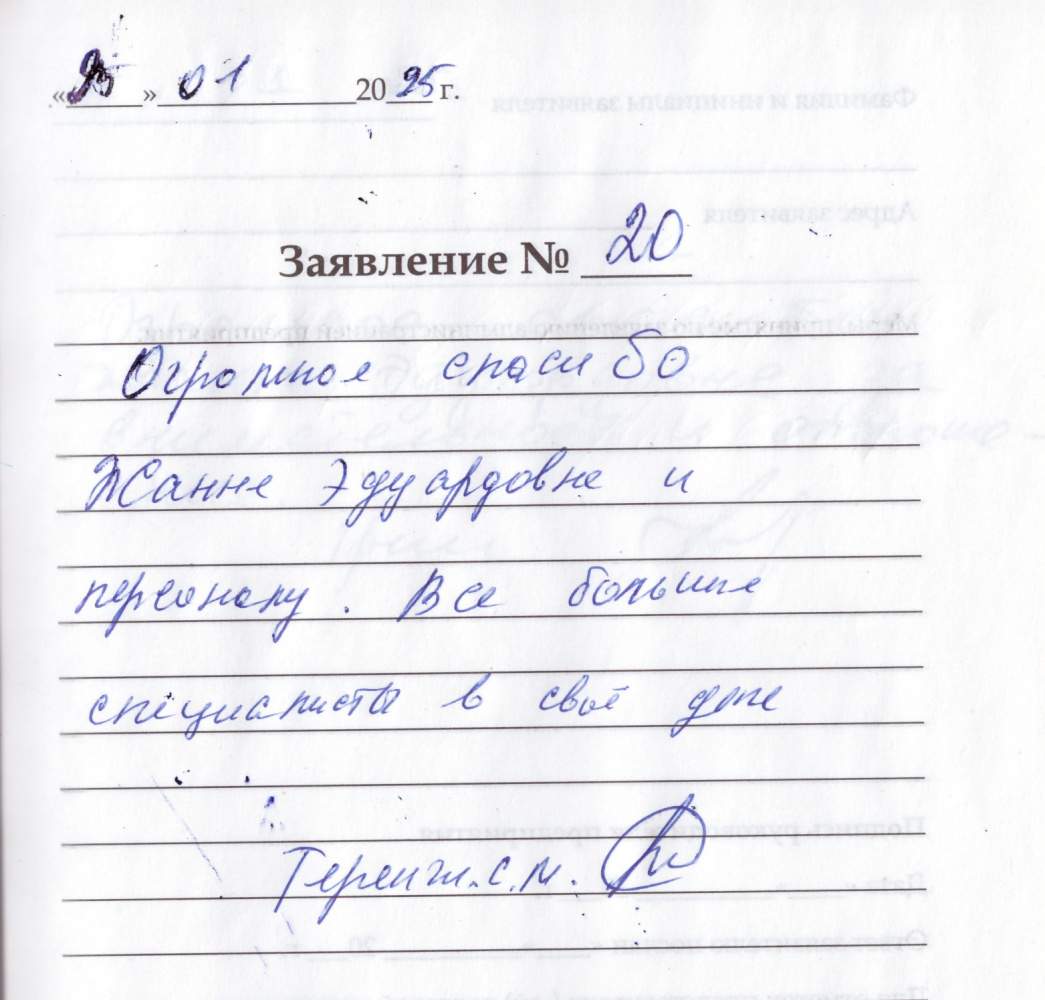 «25» 01 2025 г.
Заявление № 20
Огромное спасибо
Жанне Эдуардовне и
персоналу. Все большие
специалисты в своё деле
С.М.